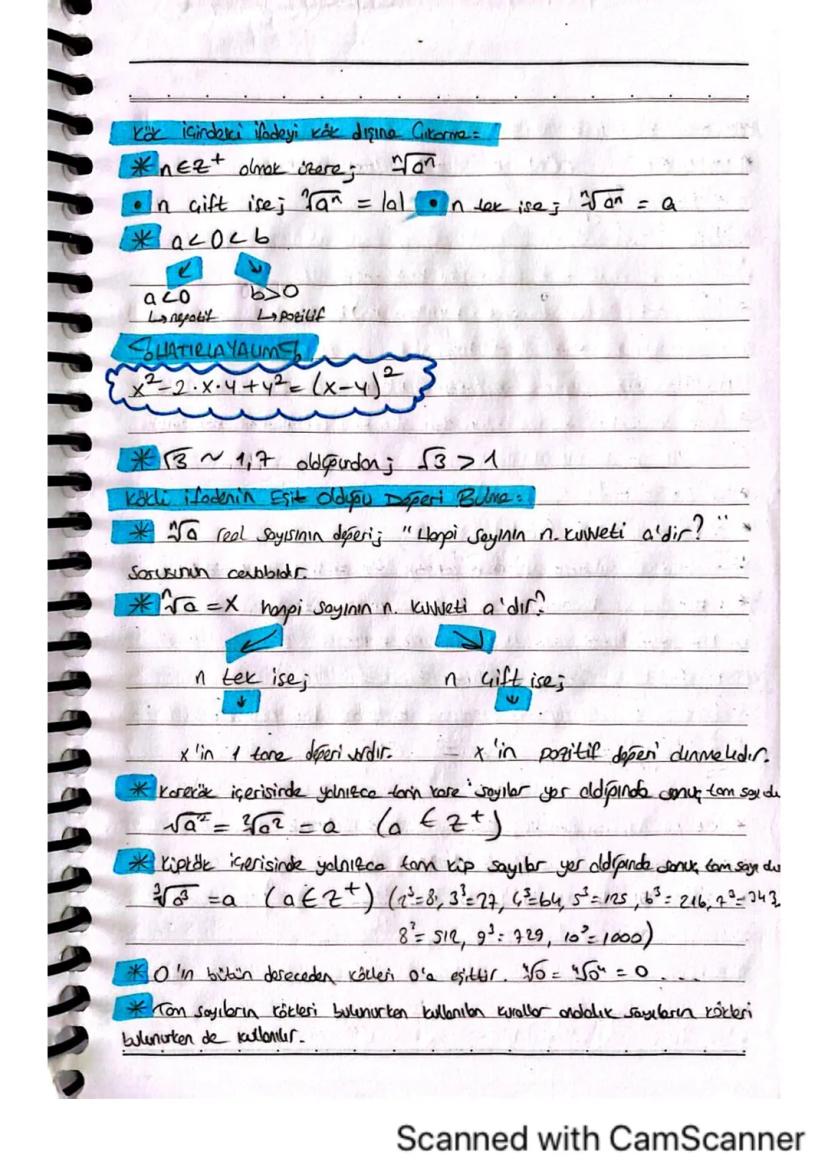 Kök içindeki ifadeyi kök dışına Çıkarma:
* n∈Z⁺ olmak üzere; ⁿ√aⁿ
• n Çift ise; ⁿ√aⁿ = |a| • n tek ise; ⁿ√aⁿ = a
* a<0<b
↙ ↘
a<0 b>0
↳negatif ↳pozitif
HATIRLAYALIM
x²-2·x·y+y²=(x-y)²
* √3 ~ 1,7 olduğundan; √3 > 1
Köklü ifadenin Eşit Olduğu Değeri Bulma:
* ⁿ√a reel sayısının değeri; "Hangi sayının n. kuvveti a'dir?"
sorusunun cevabıdır.
* ⁿ√a = x hangi sayının n. kuvveti a'dır?
↙ ↘
n tek ise; n Çift ise;
↓ ↓
x'in 1 tane değeri vardır. - x'in pozitif değeri alınmalıdır.
* Karekök içerisinde yalnızca tam kare sayılar yer aldığında sonuç tam sayıdı
√a² = ²√a² = a (a ∈ Z⁺)
* Küpkök içerisinde yalnızca tam küp sayılar yer aldığında sonuç tam sayı du
³√a³ = a (a∈Z⁺) (2³=8, 3³=27, 4³=64, 5³=125, 6³=216, 7³=343,
8³=512, 9³=729, 10³=1000)
* 0'ın bütün dereceden kökleri 0'a eşittir. = 0 ....
* Tam sayıların kökleri bulunurken kullanılan kurallar ondalık sayıların kökleri
bulunurken de kullanılır.
Scanned with CamScanner